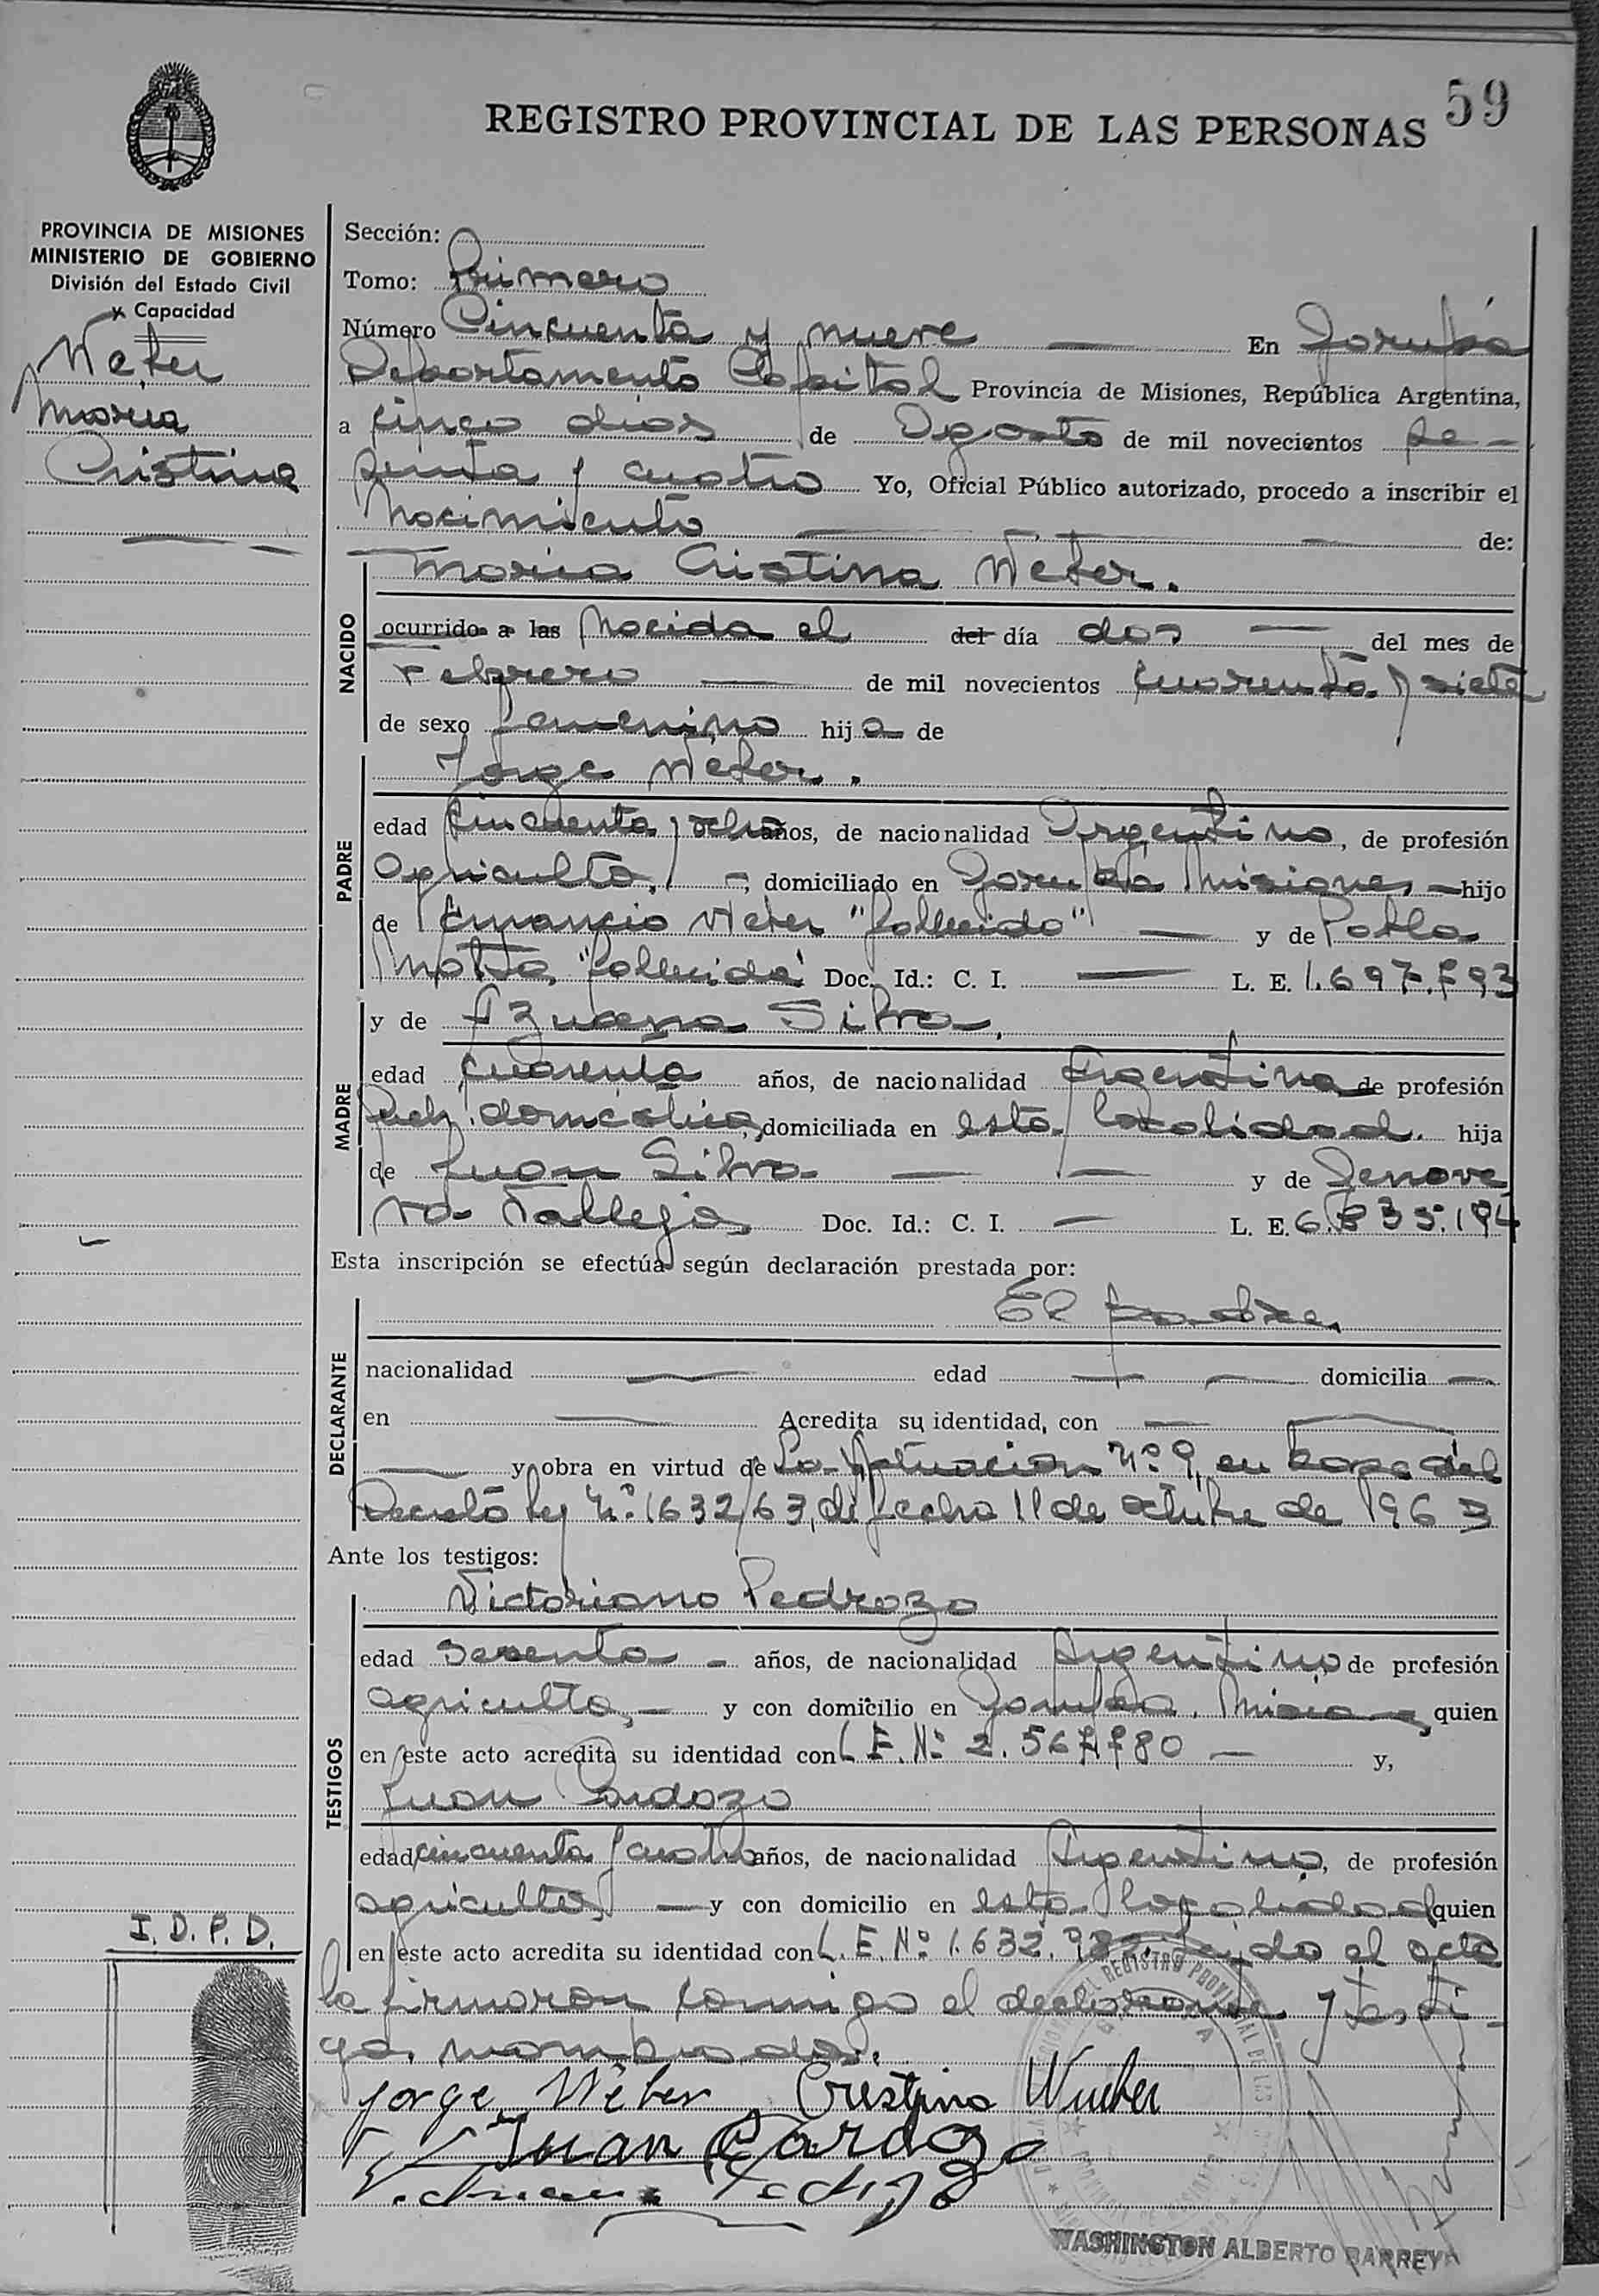 59
REGISTRO PROVINCIAL DE LAS PERSONAS
PROVINCIA DE MISIONES
MINISTERIO DE GOBIERNO
División del Estado Civil
y Capacidad
Weber
Maria
Cristina
Sección:
Tomo: Primero
Número Cincuenta y nueve En Garupá
Departamento Capital Provincia de Misiones, República Argentina,
a cinco dias de Agosto de mil novecientos se-
senta y cuatro Yo, Oficial Público autorizado, procedo a inscribir el
Nacimiento de:
NACIDO
Maria Cristina Weber.
ocurrido a las Nacida el del día dos del mes de
Febrero de mil novecientos cuarenta y siete
de sexo femenino hija de
PADRE
Jorge Weber.
edad cincuenta y ocho años, de nacionalidad Argentino, de profesión
Agricultor, domiciliado en Garupá Misiones, hijo
de Weber "fallecido" y de Pabla
"fallecida" Doc. Id.: C. I. L. E.
MADRE
y de Azucena Silva,
edad cuarenta años, de nacionalidad Argentina de profesión
Queh. domésticos, domiciliada en esta localidad. hija
de Juan Silva y de Genove
va Vallejos Doc. Id.: C. I. L. E.
Esta inscripción se efectúa según declaración prestada por:
DECLARANTE
El padre,
nacionalidad edad domicilia
en Acredita su identidad, con
y obra en virtud de La Actuacion Nº 9, en base del
Decreto Ley Nº 1632/63, de fecha 11 de octubre de 1963
Ante los testigos:
TESTIGOS
Victoriano Pedrozo
edad Sesenta años, de nacionalidad Argentino de profesión
agricultor, y con domicilio en Garupá, Misiones, quien
en este acto acredita su identidad con L. E. Nº y,
Juan Cardozo
edad cincuenta y cuatro años, de nacionalidad Argentino, de profesión
agricultor y con domicilio en esta localidad quien
en este acto acredita su identidad con L. E. Nº 1.632. Leido el acta
la firmaron conmigo el declarante y testi-
gos nombrados.
I. D. P. D.
Jorge Weber Cristina
Juan Cardozo
WASHINGTON ALBERTO BARREYRO